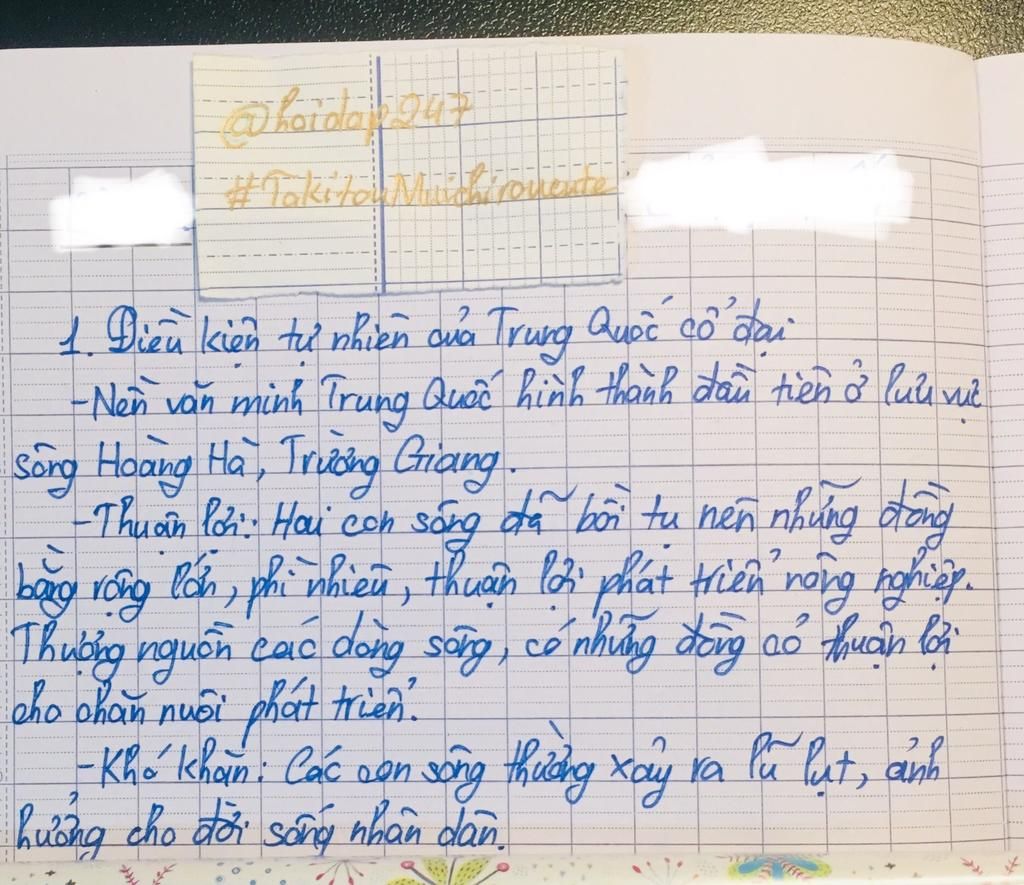 @hoidap247
#TokitouMuichirouente
1. Điều kiện tự nhiên của Trung Quốc cổ đại
-Nền văn minh Trung Quốc hình thành đầu tiên ở lưu vực
sông Hoàng Hà, Trường Giang.
-Thuận lợi: Hai con sông đã bồi tụ nên những đồng
bằng rộng lớn, phì nhiêu, thuận lợi phát triển nông nghiệp.
Thượng nguồn các dòng sông, có những đồng cỏ thuận lợi
cho chăn nuôi phát triển.
-Khó khăn: Các con sông thường xảy ra lũ lụt, ảnh
hưởng cho đời sống nhân dân.